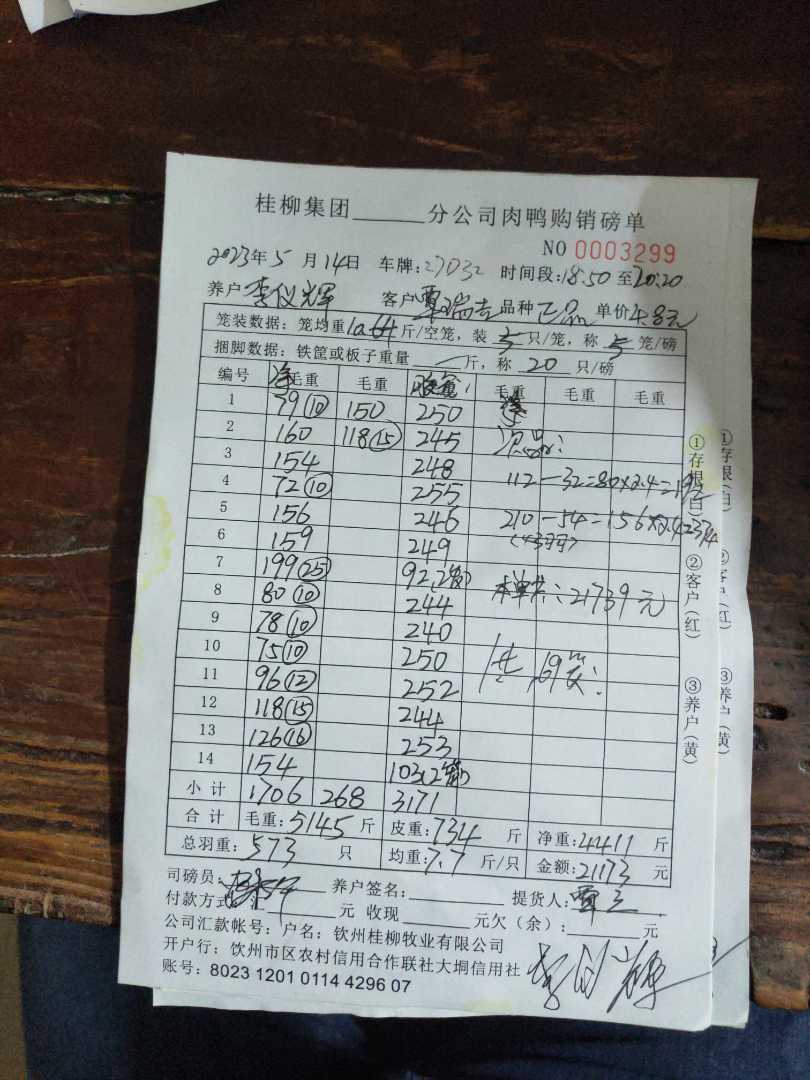 桂柳集团______分公司肉鸭购销磅单
NO 0003299
2023年5月14日 车牌:27032 时间段:18:50至20:20
养户 李仪辉 客户 覃瑞吉 品种 正品 单价4.8元
笼装数据:笼均重10.64斤/空笼,装5只/笼,称5笼/磅
捆脚数据:铁筐或板子重量 斤,称20只/磅
编号 净毛重 毛重 毛重 毛重 毛重
1 79⑩ 150 250
2 160 118⑮ 245 次品:
3 154 248
4 72⑩ 255 112-32=80×2.4=192
5 156 246 210-54=156×2.4=374
6 159 249
7 199㉕ 92.2笼)
8 80⑩ 244 本单共:21739元
9 78⑩ 240
10 75⑩ 250 共69笼:
11 96⑫ 252
12 118⑮ 244
13 126⑯ 253
14 154 103(2笼)
小计 1706 268 3171
合计 毛重:5145斤 皮重:734斤 净重:4411斤
总羽重:573只 均重:7.7斤/只 金额:21173元
司磅员: 养户签名: 提货人:覃
付款方式: 元 收现 元欠(余): 元
公司汇款帐号:户名:钦州桂柳牧业有限公司
开户行:饮州市区农村信用合作联社大垌信用社
账号:8023 1201 0114 4296 07
李仪辉
①存根(白) ②客户(红) ③养户(黄)
①存根(白) ②客户(红) ③养户(黄)